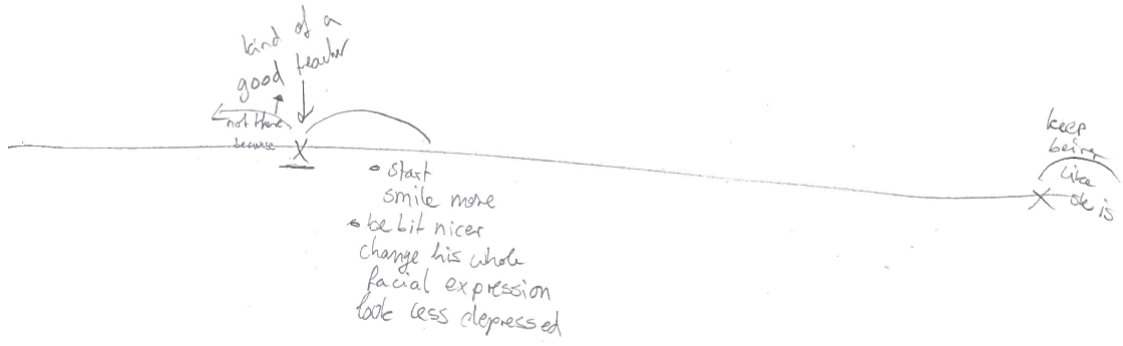 kind of a
good teacher
not there
because
X
• start
smile more
• be bit nicer
change his whole
facial expression
look less depressed
keep
being
like
she is
X